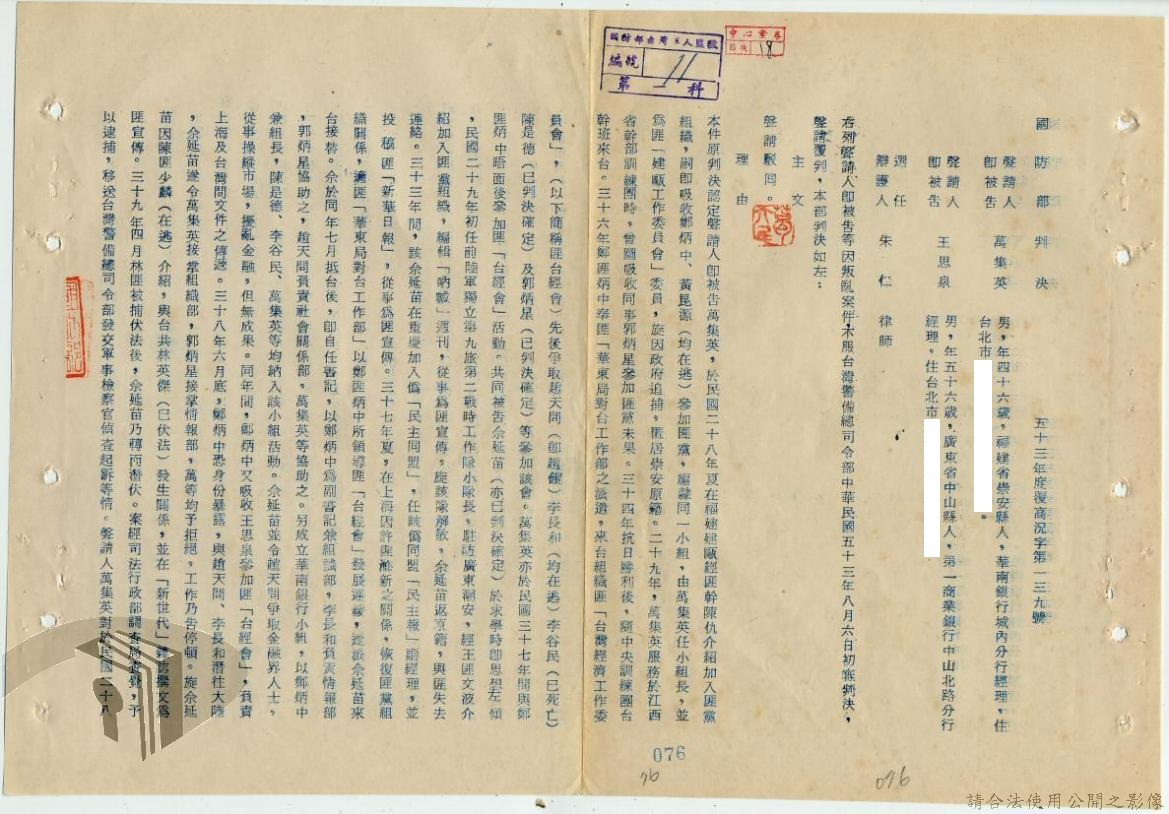 國防部台灣軍人監獄
編號
11
第一科
中心案卷
目次
18
國防部判決
五十三年度覆高況字第一三九號
聲請人
即被告
萬集英
男，年四十六歲，福建省崇安縣人，華南銀行城內分行經理，住
台北市
。
聲請人
即被告
王思泉
男，年五十六歲，廣東省中山縣人，第一商業銀行中山北路分行
經理，住台北市
選任
辯護人
朱仁律師
右列聲請人即被告等因叛亂案件，不服台灣警備總司令部中華民國五十三年八月六日初審判決，
聲請覆判，本部判決如左：
主文
聲請駁回。
理由
本件原判決認定聲請人即被告萬集英，於民國二十八年夏在福建建甌經匪幹陳仇介紹加入匪黨
組織，嗣即吸收鄭炳中、黃昆源（均在逃）參加匪黨，編隸同一小組，由萬集英任小組長，並
為匪「建甌工作委員會」委員，旋因政府追捕，匿居崇安原籍。二十九年，萬集英服務於江西
省幹部訓練團時，曾圖吸收同事郭炳星參加匪黨未果。三十四年抗日勝利後，隨中央訓練團台
幹班來台。三十六年鄭匪炳中奉匪「華東局對台工作部之派遣，來台組織匪「台灣經濟工作委
員會」，（以下簡稱匪台經會）先後爭取趙天問（即趙鏘）李長和（均在逃）李谷民（已死亡）
陳是德（已判決確定）及郭炳星（已判決確定）等參加該會。萬集英亦於民國三十七年間與鄭
匪炳中晤面後參加匪「台經會」活動。共同被告余延苗（亦已判決確定）於求學時即思想左傾
，民國二十九年初任前陸軍獨立第九旅第二戰時工作隊小隊長，駐防廣東潮安，經王匪文波介
紹加入匪黨組織，編輯「吶喊」週刊，從事為匪宣傳。旋該隊解散，余延苗返原籍，與匪失去
連絡。三十三年間，該余延苗在重慶加入偽「民主同盟」，任該偽同盟「民主報」副經理，並
投稿匪「新華日報」，從事為匪宣傳。三十七年夏，在上海因許匪滌新之關係，恢復匪黨組
織關係，適匪「華東局對台工作部」以鄭匪炳中所領導匪「台經會」發展遲緩，遂派余延苗來
台接替。余於同年七月抵台後，即自任書記，以鄭炳中為副書記兼組識部，李長和負責情報部
，郭炳星協助之，趙天問負責社會關係部。萬集英等協助之。另成立華南銀行小組，以鄭炳中
兼組長，陳是德、李谷民、萬集英等均納入該小組活動。余延苗並令趙天問爭取金融界人士，
從事操縱市場，擾亂金融，但無成果。同年間，鄭炳中又吸收王思泉參加匪「台經會」，負責
上海及台灣間文件之傳遞。三十八年六月底，鄭炳中恐身份暴露，與趙天問、李長和潛往大陸
，余延苗遂令萬集英接掌組織部，郭炳星接掌情報部，萬等均予拒絕，工作乃告停頓。旋余延
苗因陳匪少麟（在逃）介紹，與台共林英傑（已伏法）發生關係，並在「新世代」雜誌撰文為
匪宣傳。三十九年四月林匪被捕伏法後，余延苗乃轉而潛伏。案經司法行政部調查局查覺，予
以逮捕，移送台灣警備總司令部發交軍事檢察官偵查起訴等情。聲請人萬集英對於民國二十八
076
76
076
請合法使用公開之影像